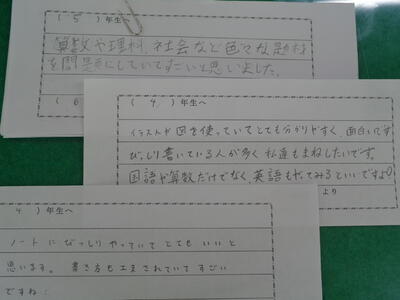 ( 5 )年生へ
算数や理科、社会など色々な題材
を問題にしていてすごいと思いました。
( 6
( 4 )年生へ
イラストや図を使っていてとても分かりやすく、面白いです
びっしり書いている人が多く私達もまねしたいです。
国語や算数だけでなく、英語もやってみるといいですよ♪
より
4 )年生へ
ノートにびっしりやっていてとてもいいと
思います。書き方も工夫されていてすごい
ですね!